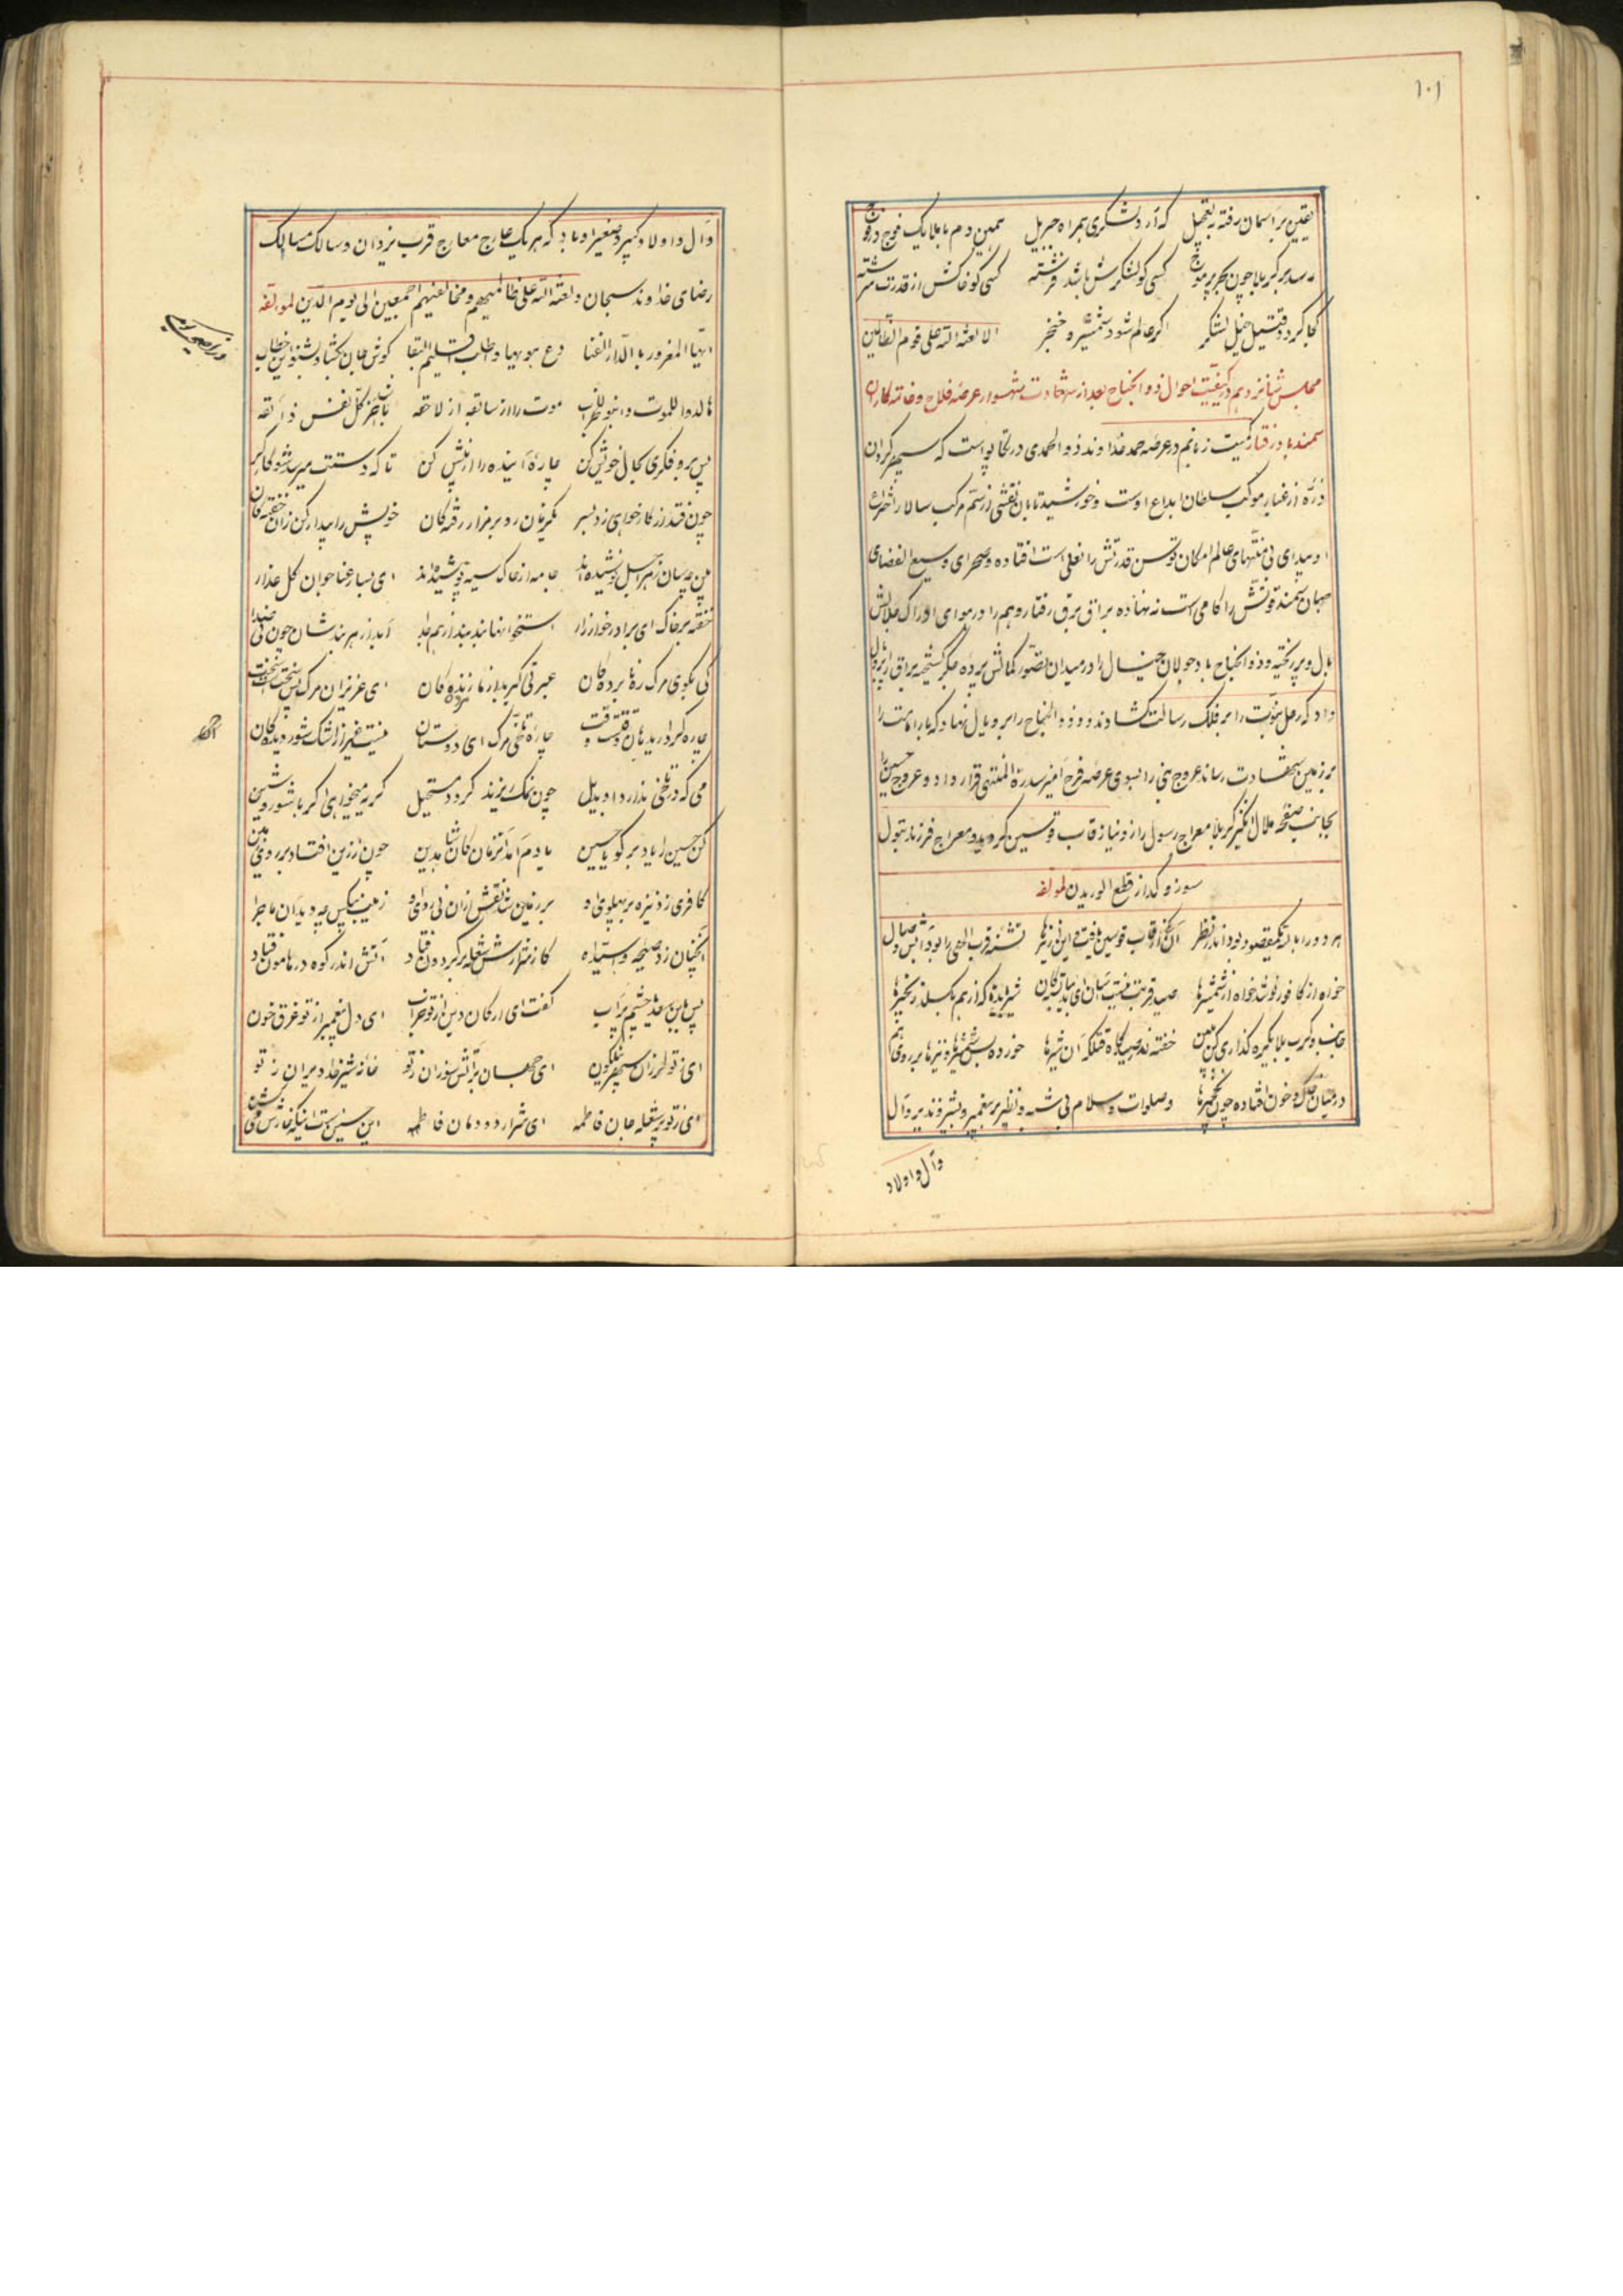 ۱۰۱
یقین بر آسمان رفته به تعجیل که آرد لشکری همراه جبریل همین دم با ملایک فوج در فوج
رسد بر کربلا چون بحر پر موج کسی کو لشکرش باشد فرشته کسی کو خاکش از قدرت سرشته
کجا گردد قتیل خیل لشکر اگر عالم شود شمشیر و خنجر الا لعنة الله علی قوم الظالمین
مجلس شانزدهم در کیفیت احوال ذو الجناح بعد از شهادت شهسوار عرصه فلاح و خاتمه کار آن
سمند باد رفتار کمیت زبانم در عرصه حمد خداوند ذو الحمدی در تکاپو است که سپهر گردان
ذره از غبار موکب سلطان ابداع اوست و خورشید تابان نقشی از سم مرکب سالار اختراع
او میدای بی منتهای عالم امکان توسن قدرتش را نعلی است افتاده و صحرای وسیع الفضای
جهان سمند قوتش را کامی است نه نهاده براق برق رفتار و هم را در هوای ادراک جلالش
بال و پر ریخته و ذو الجناح باد جولان خیال را در میدان تصور کمالش پرده جگر گسیخته براق را پر و بال
داد که رحل نبوت را بر فلک رسالت کشاند و ذو الجناح را پر و بال نهاد که بار امامت را
بر زمین شهادت رساند عروج نبی را بسوی عرصه فرح آمیز سدرة المنتهی قرار داد و عروج حسین را
بجانب صفحه ملال انگیز کربلا معراج رسول را راز و نیاز قاب قوسین گردید و معراج فرزند بتول
سوز و گداز قطع الوریدن لمولفه
هر دو را با آن یک مقصود بود اندر نظر آن یکی از قاب قوسین یافت و این از تیرها تشنه قرب الهی را بود آب وصال
خواه از کافور نوشد خواه از شمشیرها صید قربت نیست آسان ای بیابان شیر باید که از هم بگسلد زنجیرها
جانب کرب بلا یکره گذاری کن ببین خفته در صیدگاه قتلگه آن شیرها خورده بس شمشیر و تیرها بر روی هم
در میان خاک و خون افتاده چون نخجیرها وصلوات و سلام بی شبه و نظیر بر پیغمبر و بشیر و نذیر و آل
و آل و اولاد
و آل و اولاد کبیر و صغیر او باد که هر یک عارج معارج قرب یزدان و سالک مسالک
رضای خداوند سبحان و لعنة الله علی ظالمیهم و مخالفیهم اجمعین الی یوم الدین لمولفه
ایها المغرور بالدار الفنا دع هویها و اطلب اقلیم البقا گوش جان بگشا و بشنو این خطاب
ها لدوا للموت و ابنوا للخراب موت را از سابقه از لاحقه باخبر کل نفس ذائقه
پس برو فکری بحال خویش کن چاره آینده را از پیش کن تا که دستت میرسد شو کارگر
چون فتد از کار خواهی زد بسر یکزمان رو بر مزار رفته گان خویش را بیدار کن زان خفته گان
بین چه سان زهر اجل نوشیده اند جامه از خاک سیه پوشیده اند ای بسا رعنا جوان گل عذار
خفته بر خاک ای برادر خوار زار استخوانها بند بند از هم جدا آید از هر بندشان چون نی صدا
کی بکوی مرگ ره نابرده گان عبرتی گیرید از ما زنده گان ای عزیزان مرگ بس سخت است سخت
چاره تلخی مرگ ای دوستان نیست غیر از اشک شور دیدگان
می که در تلخی ندارد او بدیل چون نمک ریزند گردد مستحیل گریه میخواهی اگر با شور و شین
کن حسین را یاد برگو یا حسین یادم آمد آنزمان کان شاه دین چون از زین افتاد بر روی زمین
کافری زد نیزه بر پهلوی او بر زمین شد نقش ازان نی روی او زینب بیکس چه دید آن ماجرا
آنچنان زد صیحه و اسیداه کز شرارش شعله بر گردون فتاد آتش اندر کوه در هامون فتاد
پس به ابن سعد چشم پرآب گفت ای ارکان دین از تو خراب ای دل پیغمبر از تو غرق خون
ای ز تو لرزان سپهر نیلگون ای جهان بر آتش سوزان ز تو خانه شیر خدا ویران ز تو
ای ز تو پر شعله جان فاطمه ای شرار دودمان فاطمه این حسین است اینکه